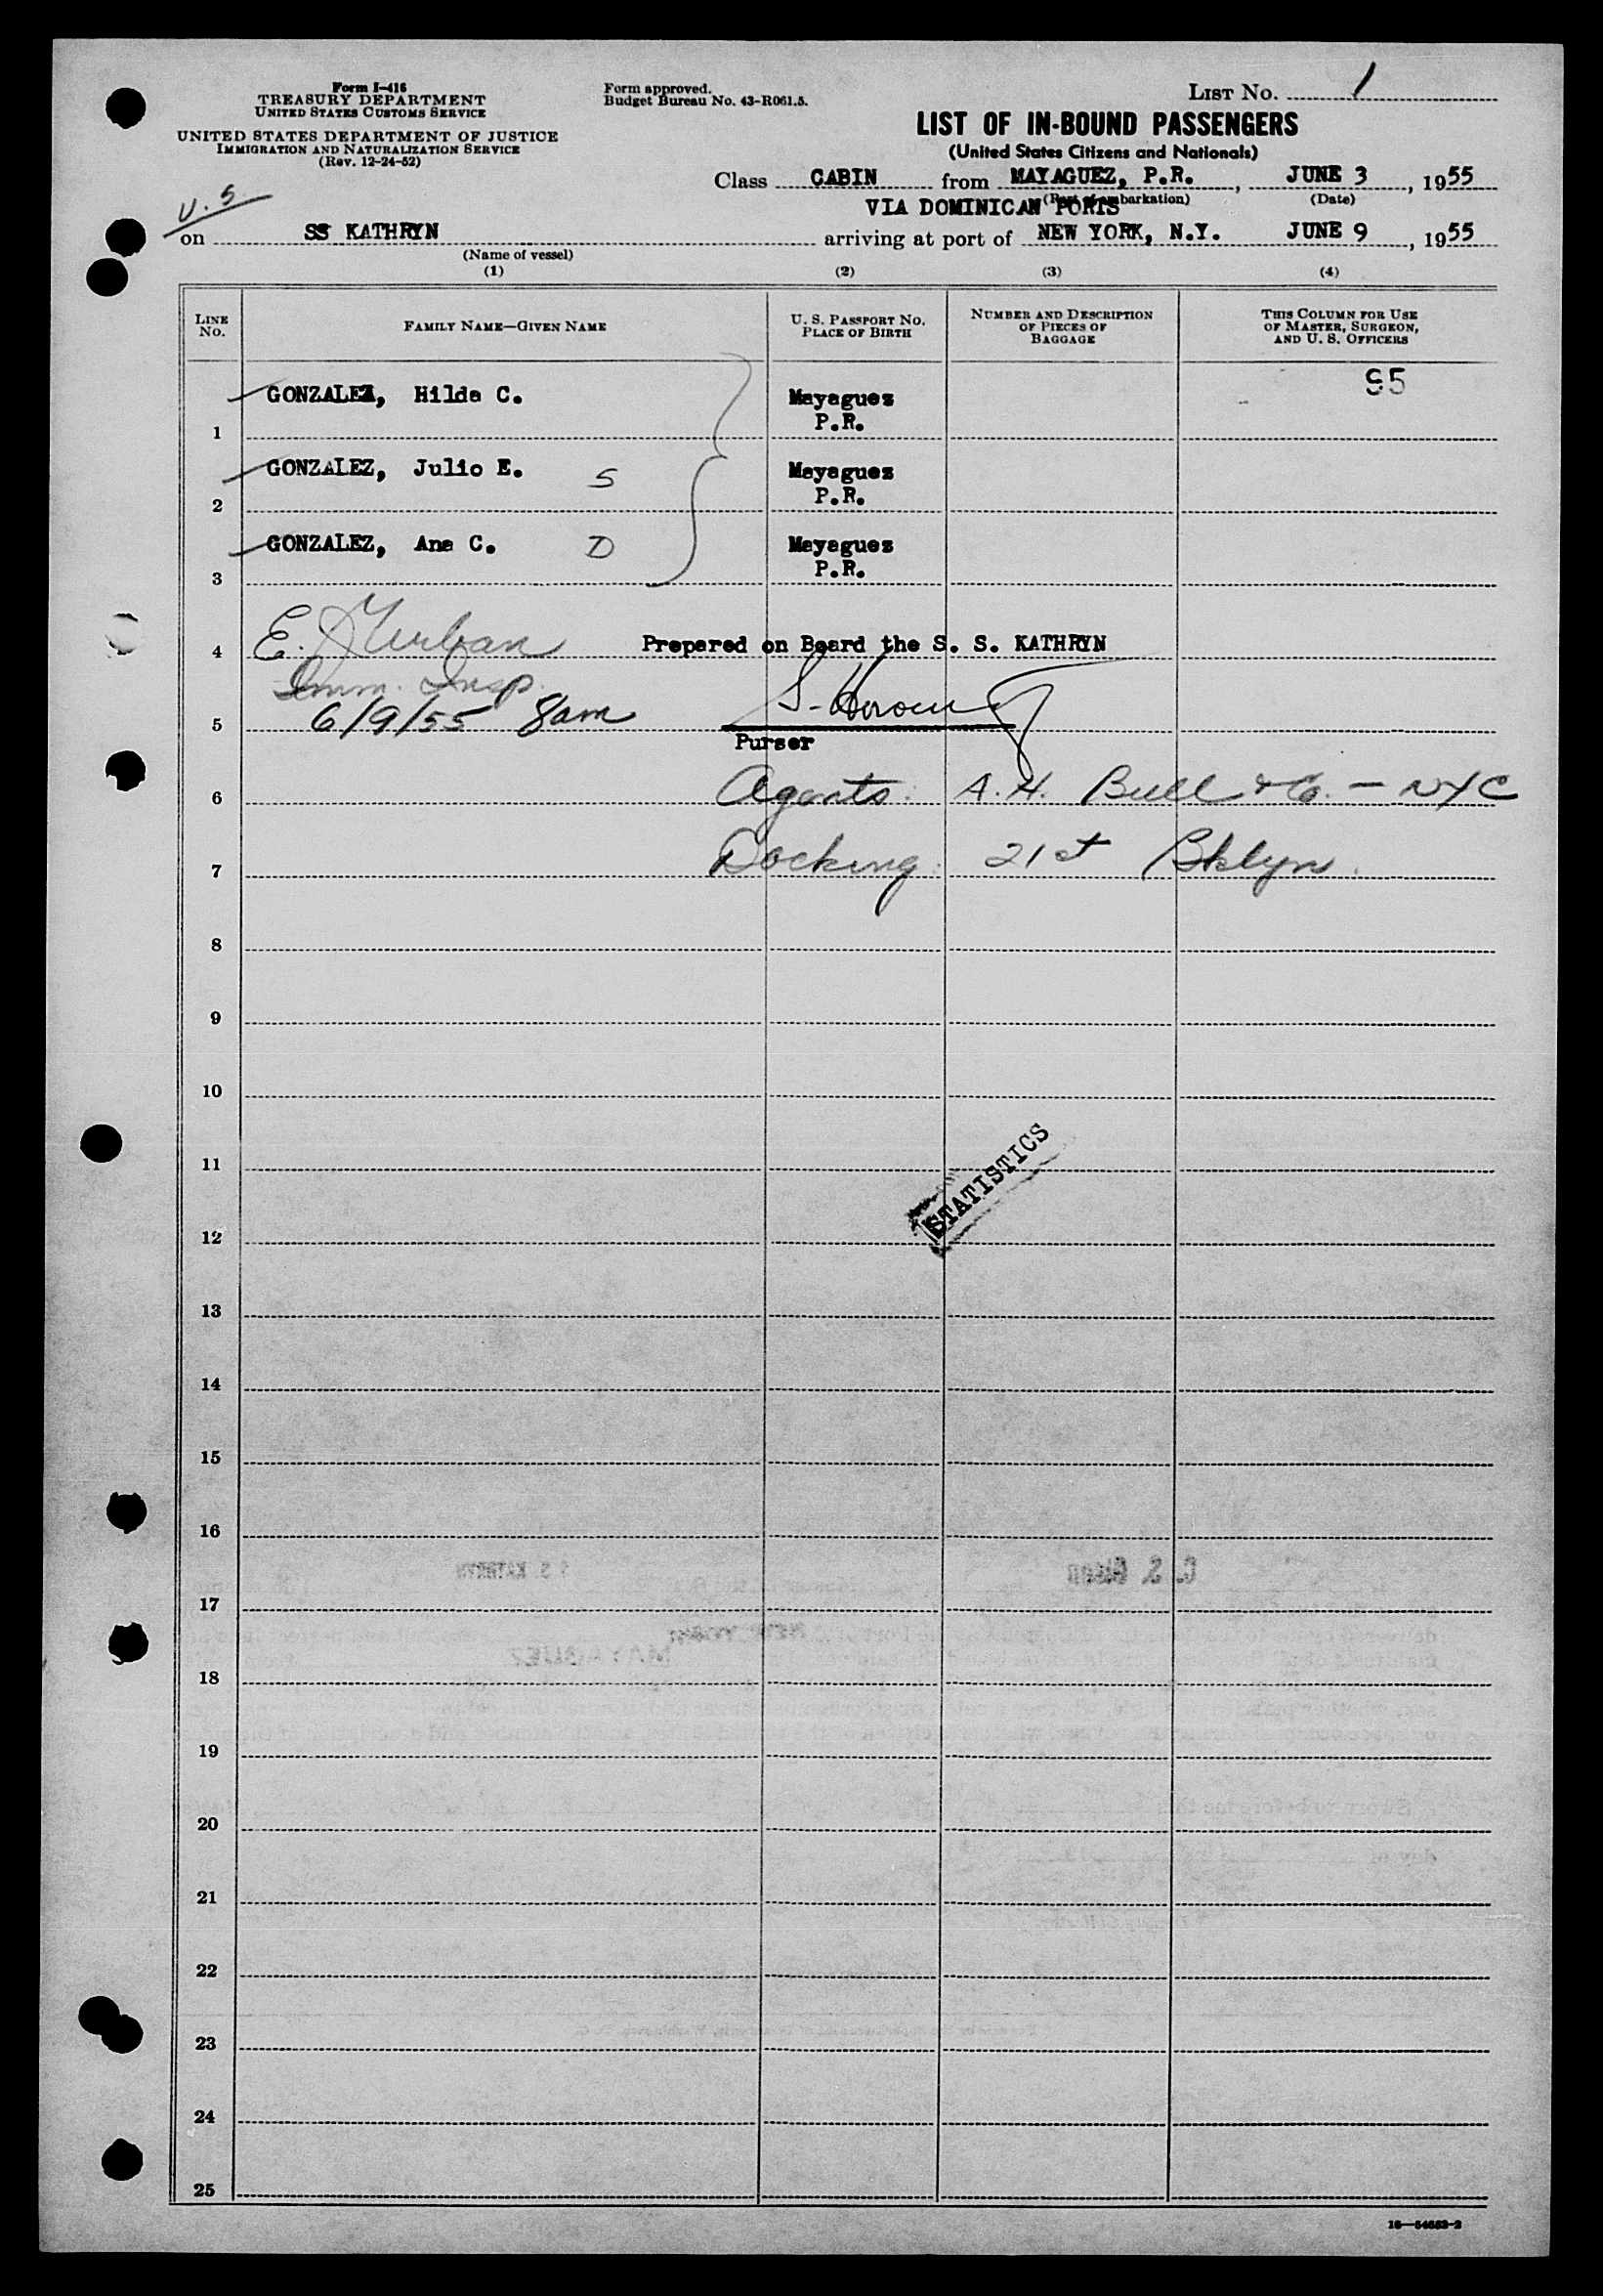 Form I-416
TREASURY DEPARTMENT
UNITED STATES CUSTOMS SERVICE
UNITED STATES DEPARTMENT OF JUSTICE
IMMIGRATION AND NATURALIZATION SERVICE
(Rev. 12-24-52)
Form approved.
Budget Bureau No. 43-R061.5.
LIST No. 1
LIST OF IN-BOUND PASSENGERS
(United States Citizens and Nationals)
Class CABIN from MAYAGUEZ, P.R., JUNE 3, 1955
(Port of embarkation) (Date)
VIA DOMINICAN PORTS
U.S.
on SS KATHRYN arriving at port of NEW YORK, N.Y. JUNE 9, 1955
(Name of vessel)
(1) (2) (3) (4)
LINE No. FAMILY NAME—GIVEN NAME U. S. PASSPORT No. PLACE OF BIRTH NUMBER AND DESCRIPTION OF PIECES OF BAGGAGE THIS COLUMN FOR USE OF MASTER, SURGEON, AND U. S. OFFICERS
95
1 GONZALEZ, Hilda C. Mayaguez P.R.
2 GONZALEZ, Julio E. S Mayaguez P.R.
3 GONZALEZ, Ana C. D Mayaguez P.R.
4 E. J. Urban Prepared on Board the S. S. KATHRYN
Imm. Insp.
5 6/9/55 8am
Purser
6 Agents: A. H. Bull & Co. — NYC
7 Docking: 21st Bklyn.
8
9
10
11
STATISTICS
12
13
14
15
16
17
18
19
20
21
22
23
24
25
16—54653-2